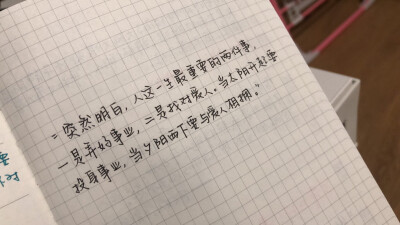 =突然明白，人这一生最重要的两件事，
一是弄好事业，二是找对爱人。当太阳升起要
投身事业，当夕阳西下要与爱人相拥。
要
对